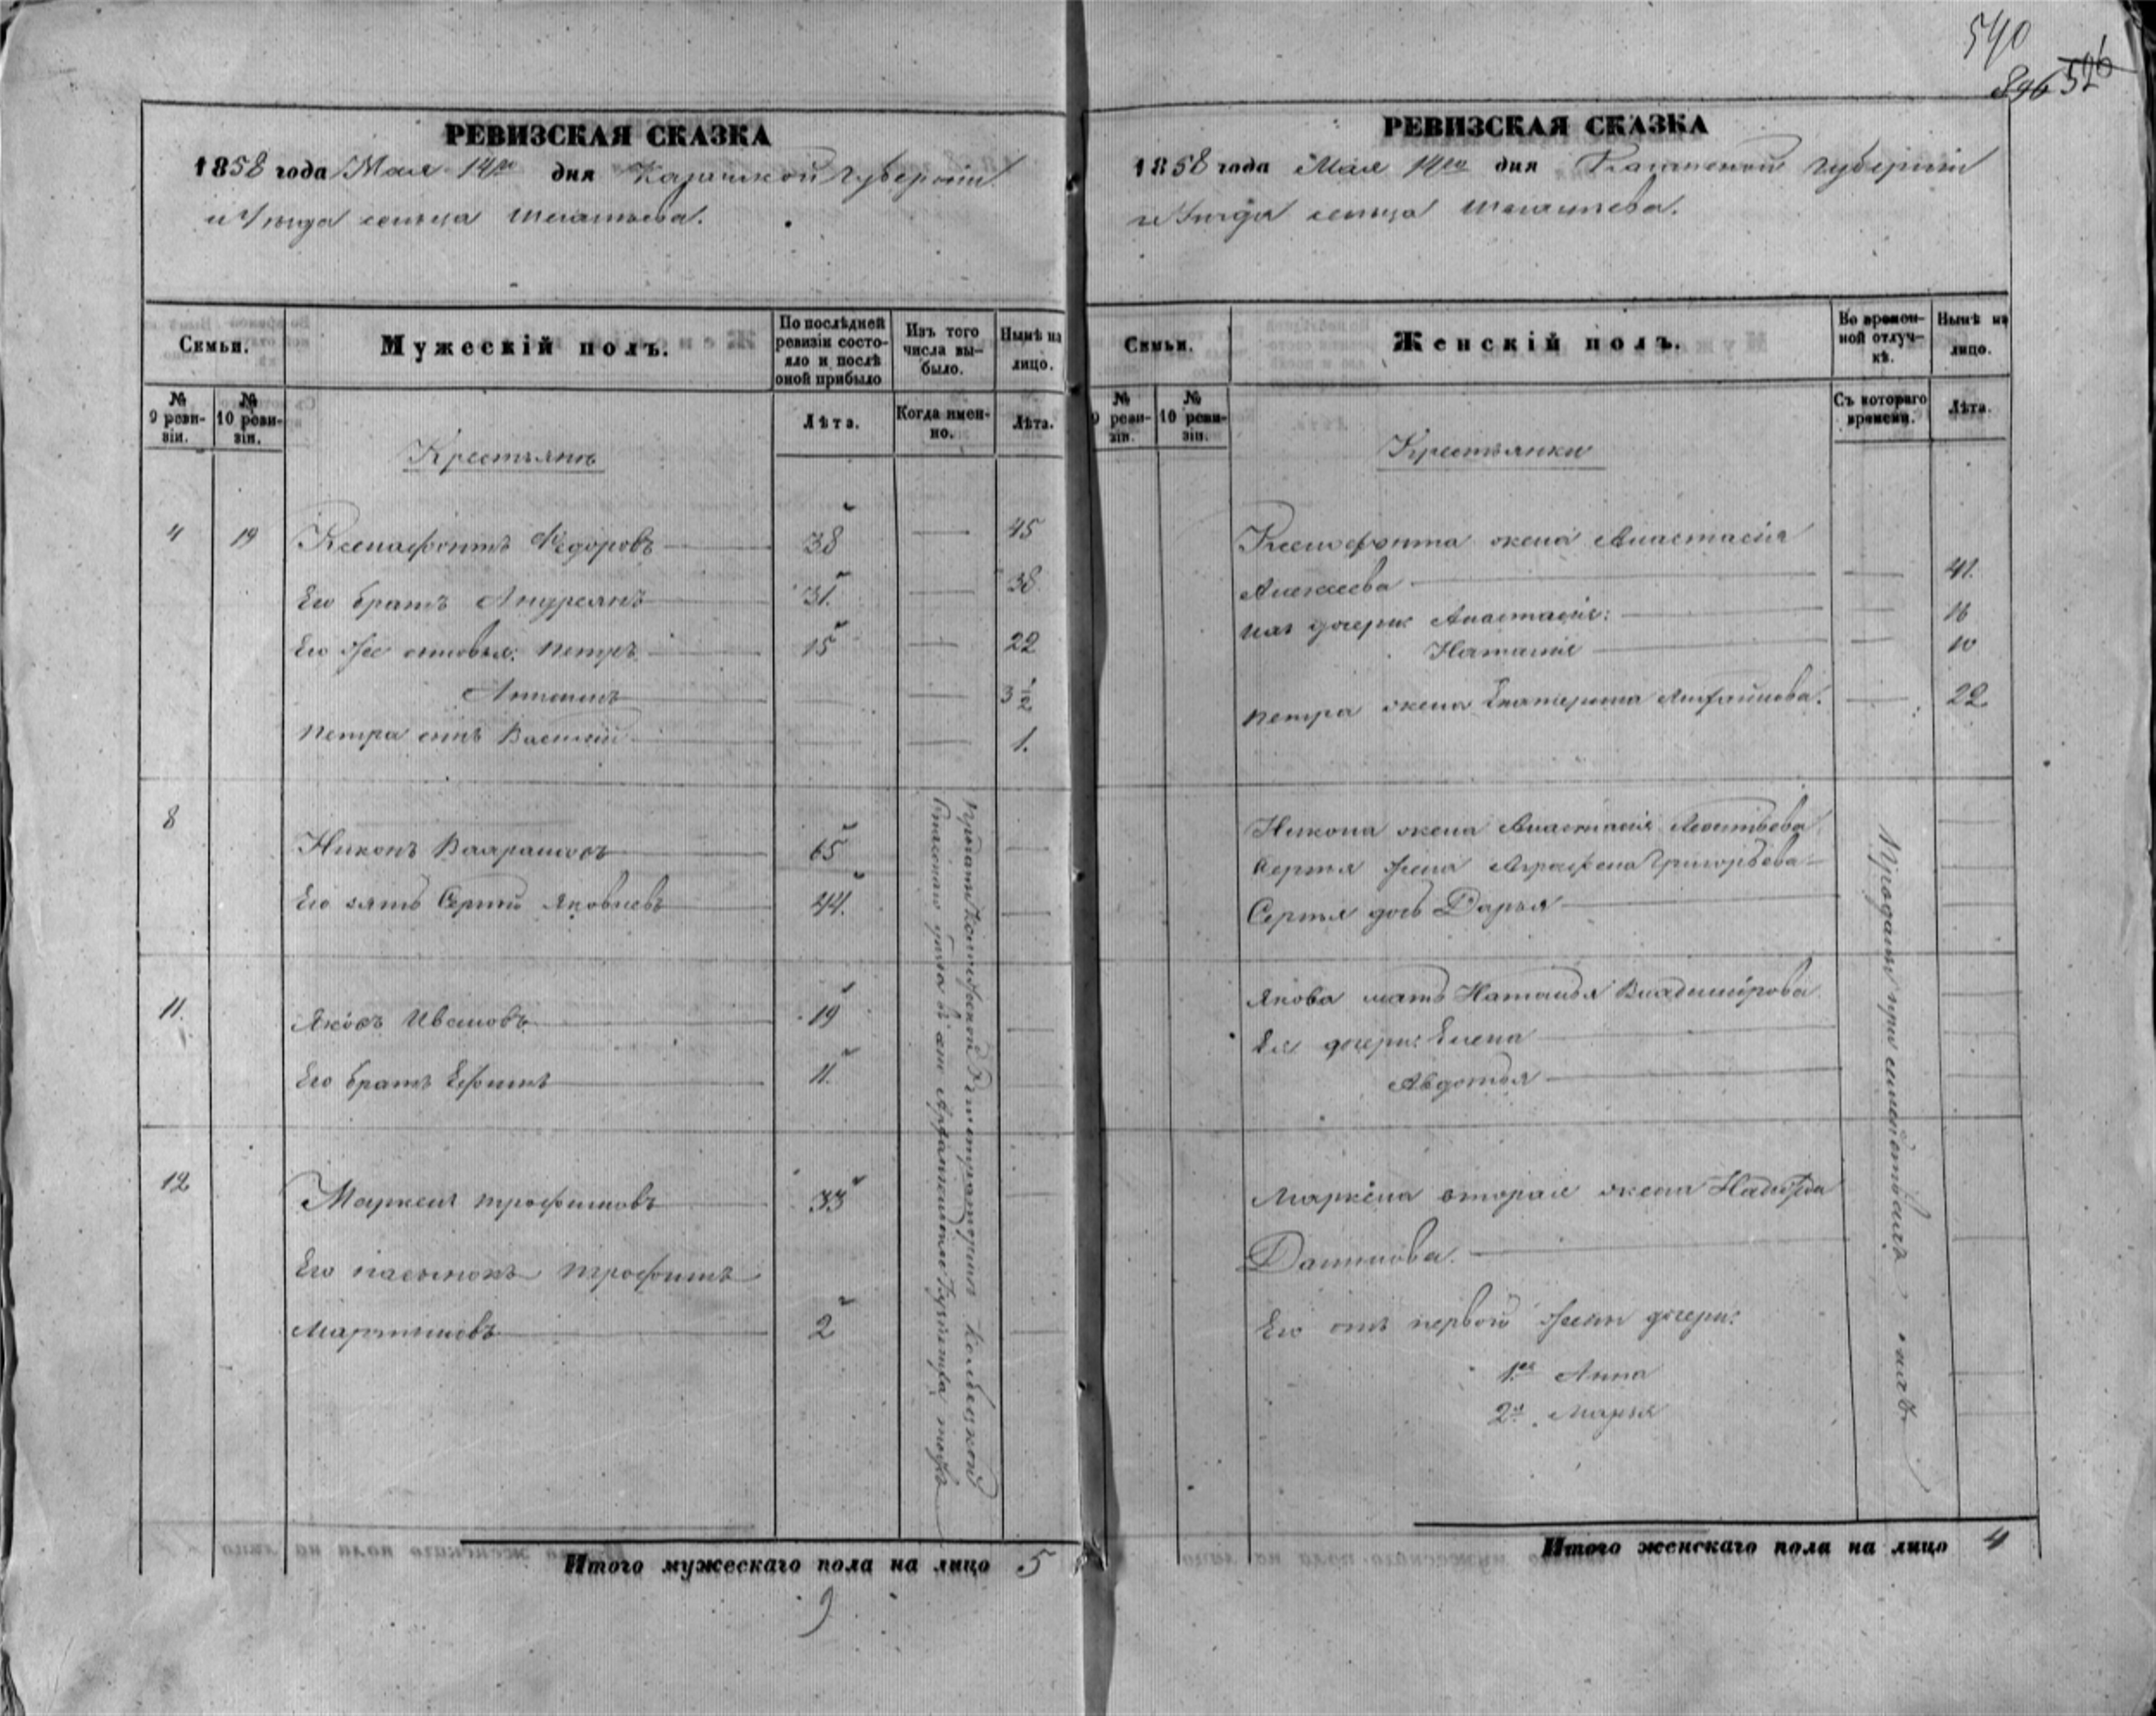 540
896 526
РЕВИЗСКАЯ СКАЗКА
1858 года Мая 14го дня Казанской Губерніи
и Уѣзда сельца
Семьи.
Мужескій полъ.
По послѣдней ревизіи состояло и послѣ оной прибыло
Изъ того числа выбыло.
Нынѣ на лицо.
№ 9 ревизіи.
№ 10 ревизіи.
Лѣта.
Когда именно.
Лѣта.
Крестьянъ
4 19 Ксенафонтъ Федоровъ 38 45
Его братъ Андреянъ 31. 38
Его же сыновья: Петръ 15 22
3 1/2
Петра сынъ Василій 1.
8
Никонъ 65
Его зять Сергѣй Яковлевъ 44.
11.
Яковъ Ивановъ 19
Его братъ Ефимъ 11.
12
Маркелъ Трофимовъ 33
Его пасынокъ Трофимъ
Мартыновъ 2
Итого мужескаго пола на лицо 5
9
РЕВИЗСКАЯ СКАЗКА
1858 года Мая 14го дня Казанской Губерніи
и Уѣзда сельца
Семьи.
Женскій полъ.
Во временной отлучкѣ.
Нынѣ на лицо.
№ 9 ревизіи.
№ 10 ревизіи.
Съ котораго времени.
Лѣта.
Крестьянки
Ксенофонта жена Анастасія
Алексеева 41.
Ихъ дочери: Анастасія: 16
Наталія 10
Петра жена Екатерина 22
Никона жена Анастасія Леонтьева
Сергѣя жена Аграфена Григорьева
Сергѣя дочь Дарья
Якова мать Наталья Владимірова
Ея дочери: Елена
Авдотья
Маркела вторая жена Надежда
Данилова.
Его отъ первой жены дочери:
1ая Анна
2я Марья
Проданы при семействахъ
Итого женскаго пола на лицо 4